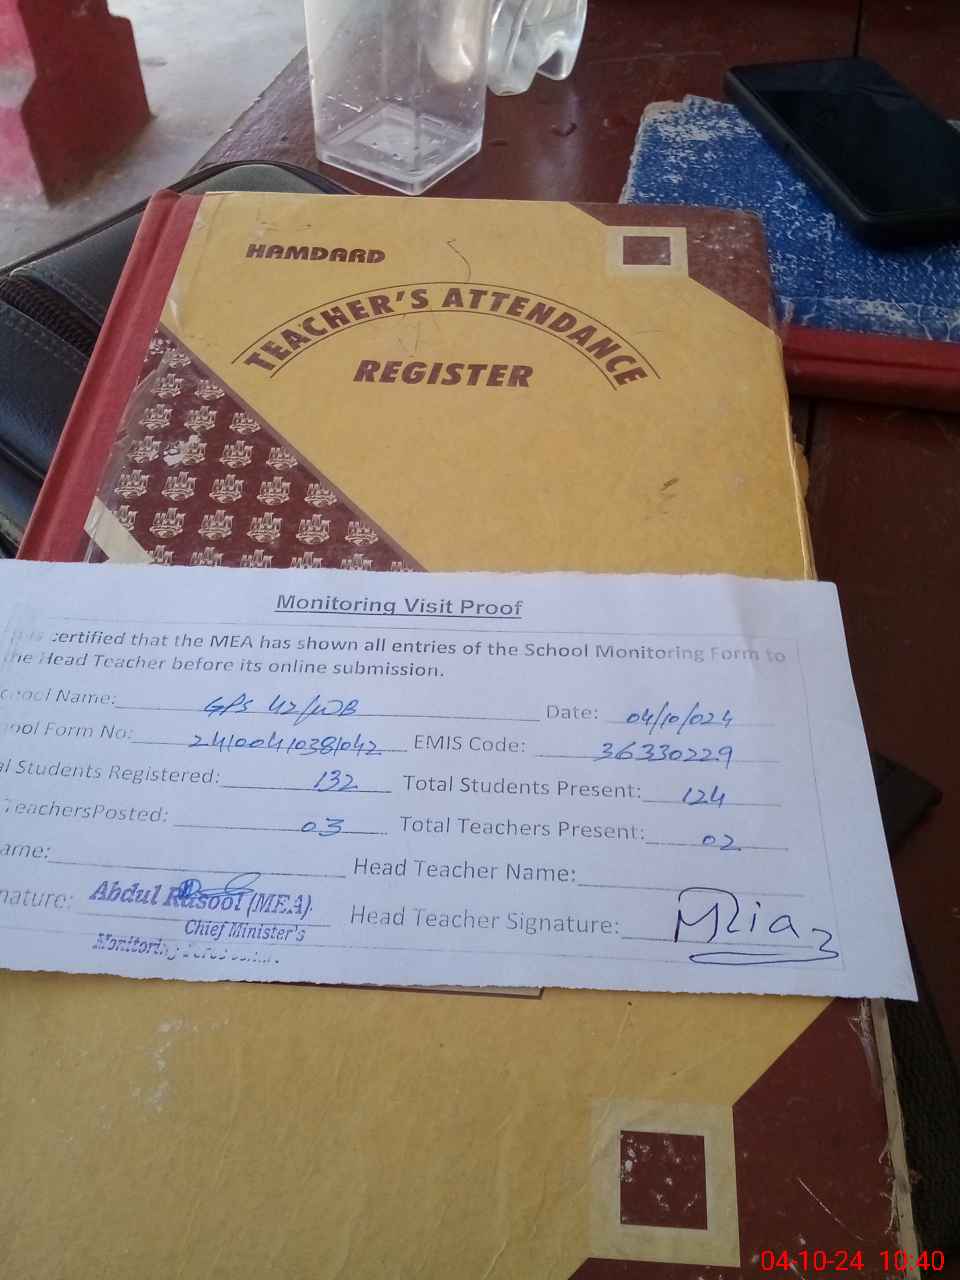 HAMDARD
TEACHER'S ATTENDANCE
REGISTER
Monitoring Visit Proof
is certified that the MEA has shown all entries of the School Monitoring Form to
he Head Teacher before its online submission.
chool Name: GPS 42/WB Date: 04/10/024
hool Form No: 2410041038/042 EMIS Code: 36330229
al Students Registered: 132 Total Students Present: 124
TeachersPosted: 03 Total Teachers Present: 02
ame: Head Teacher Name:
nature: Abdul Rasool (MEA) Head Teacher Signature:
Chief Minister's
Monitoring
04-10-24 10:40